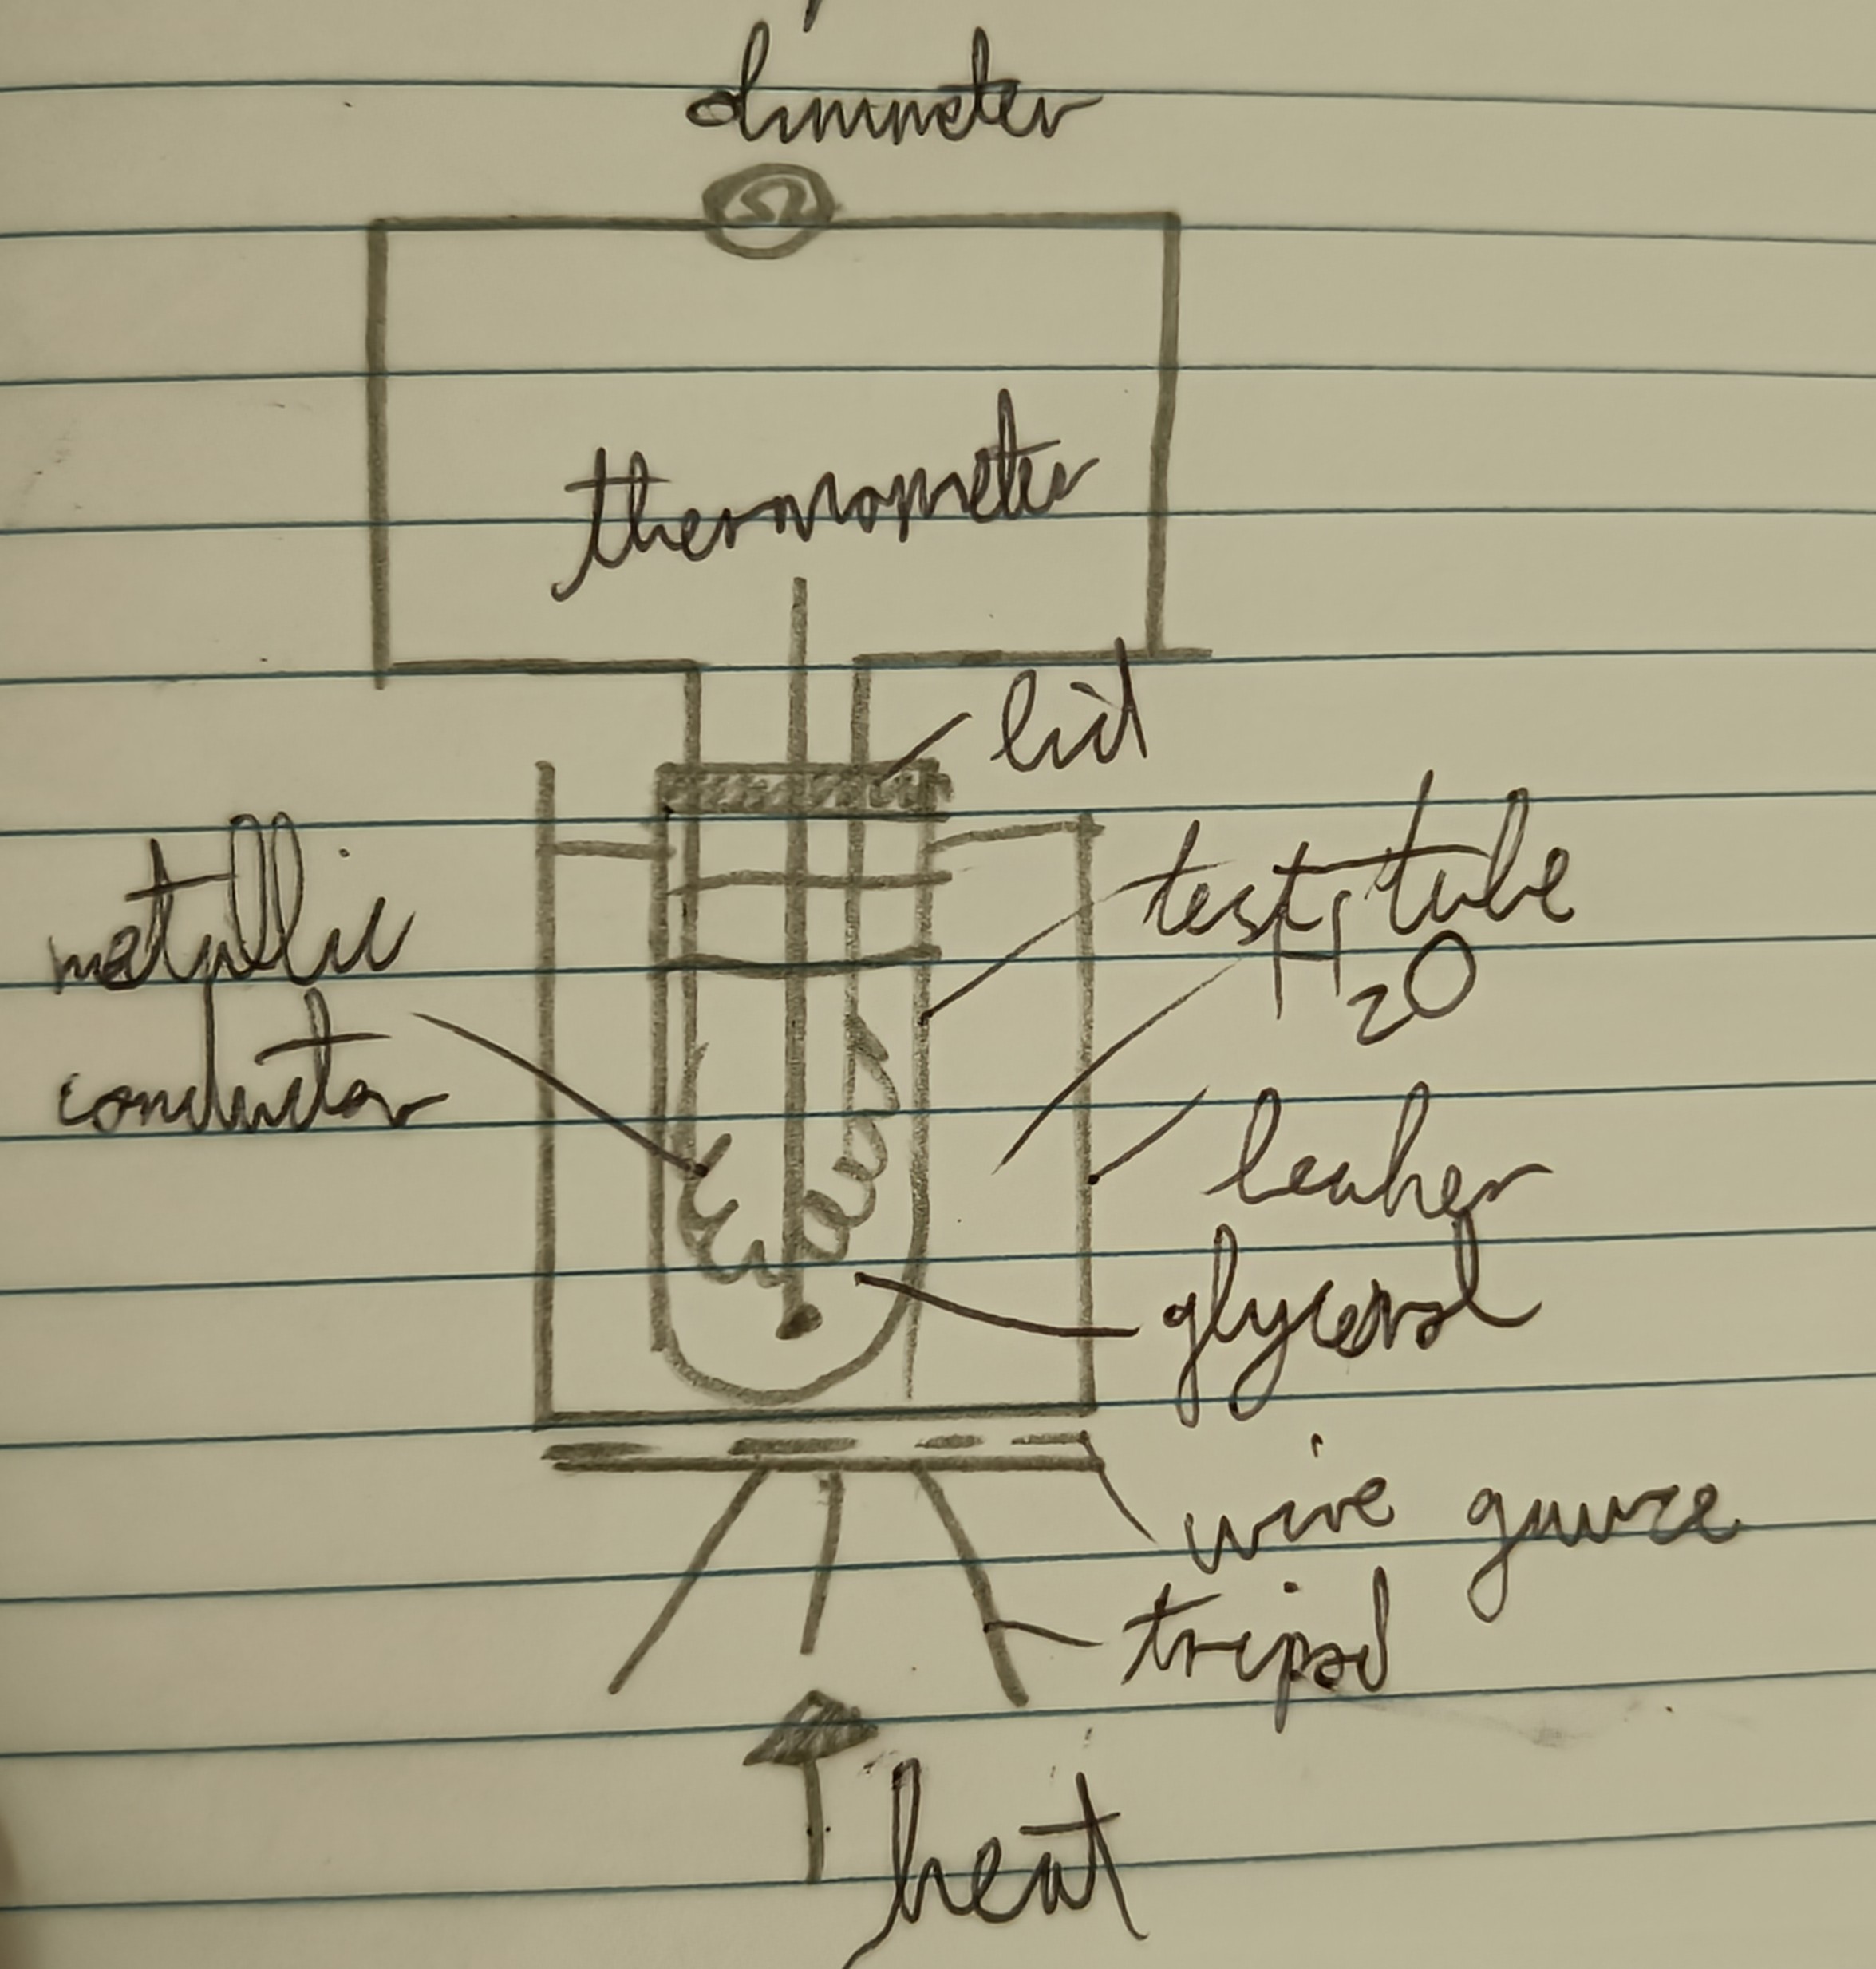 ohmmeter
Ω
thermometer
lid
test tube
metallic
H₂O
conductor
beaker
glycerol
wire gauze
tripod
heat